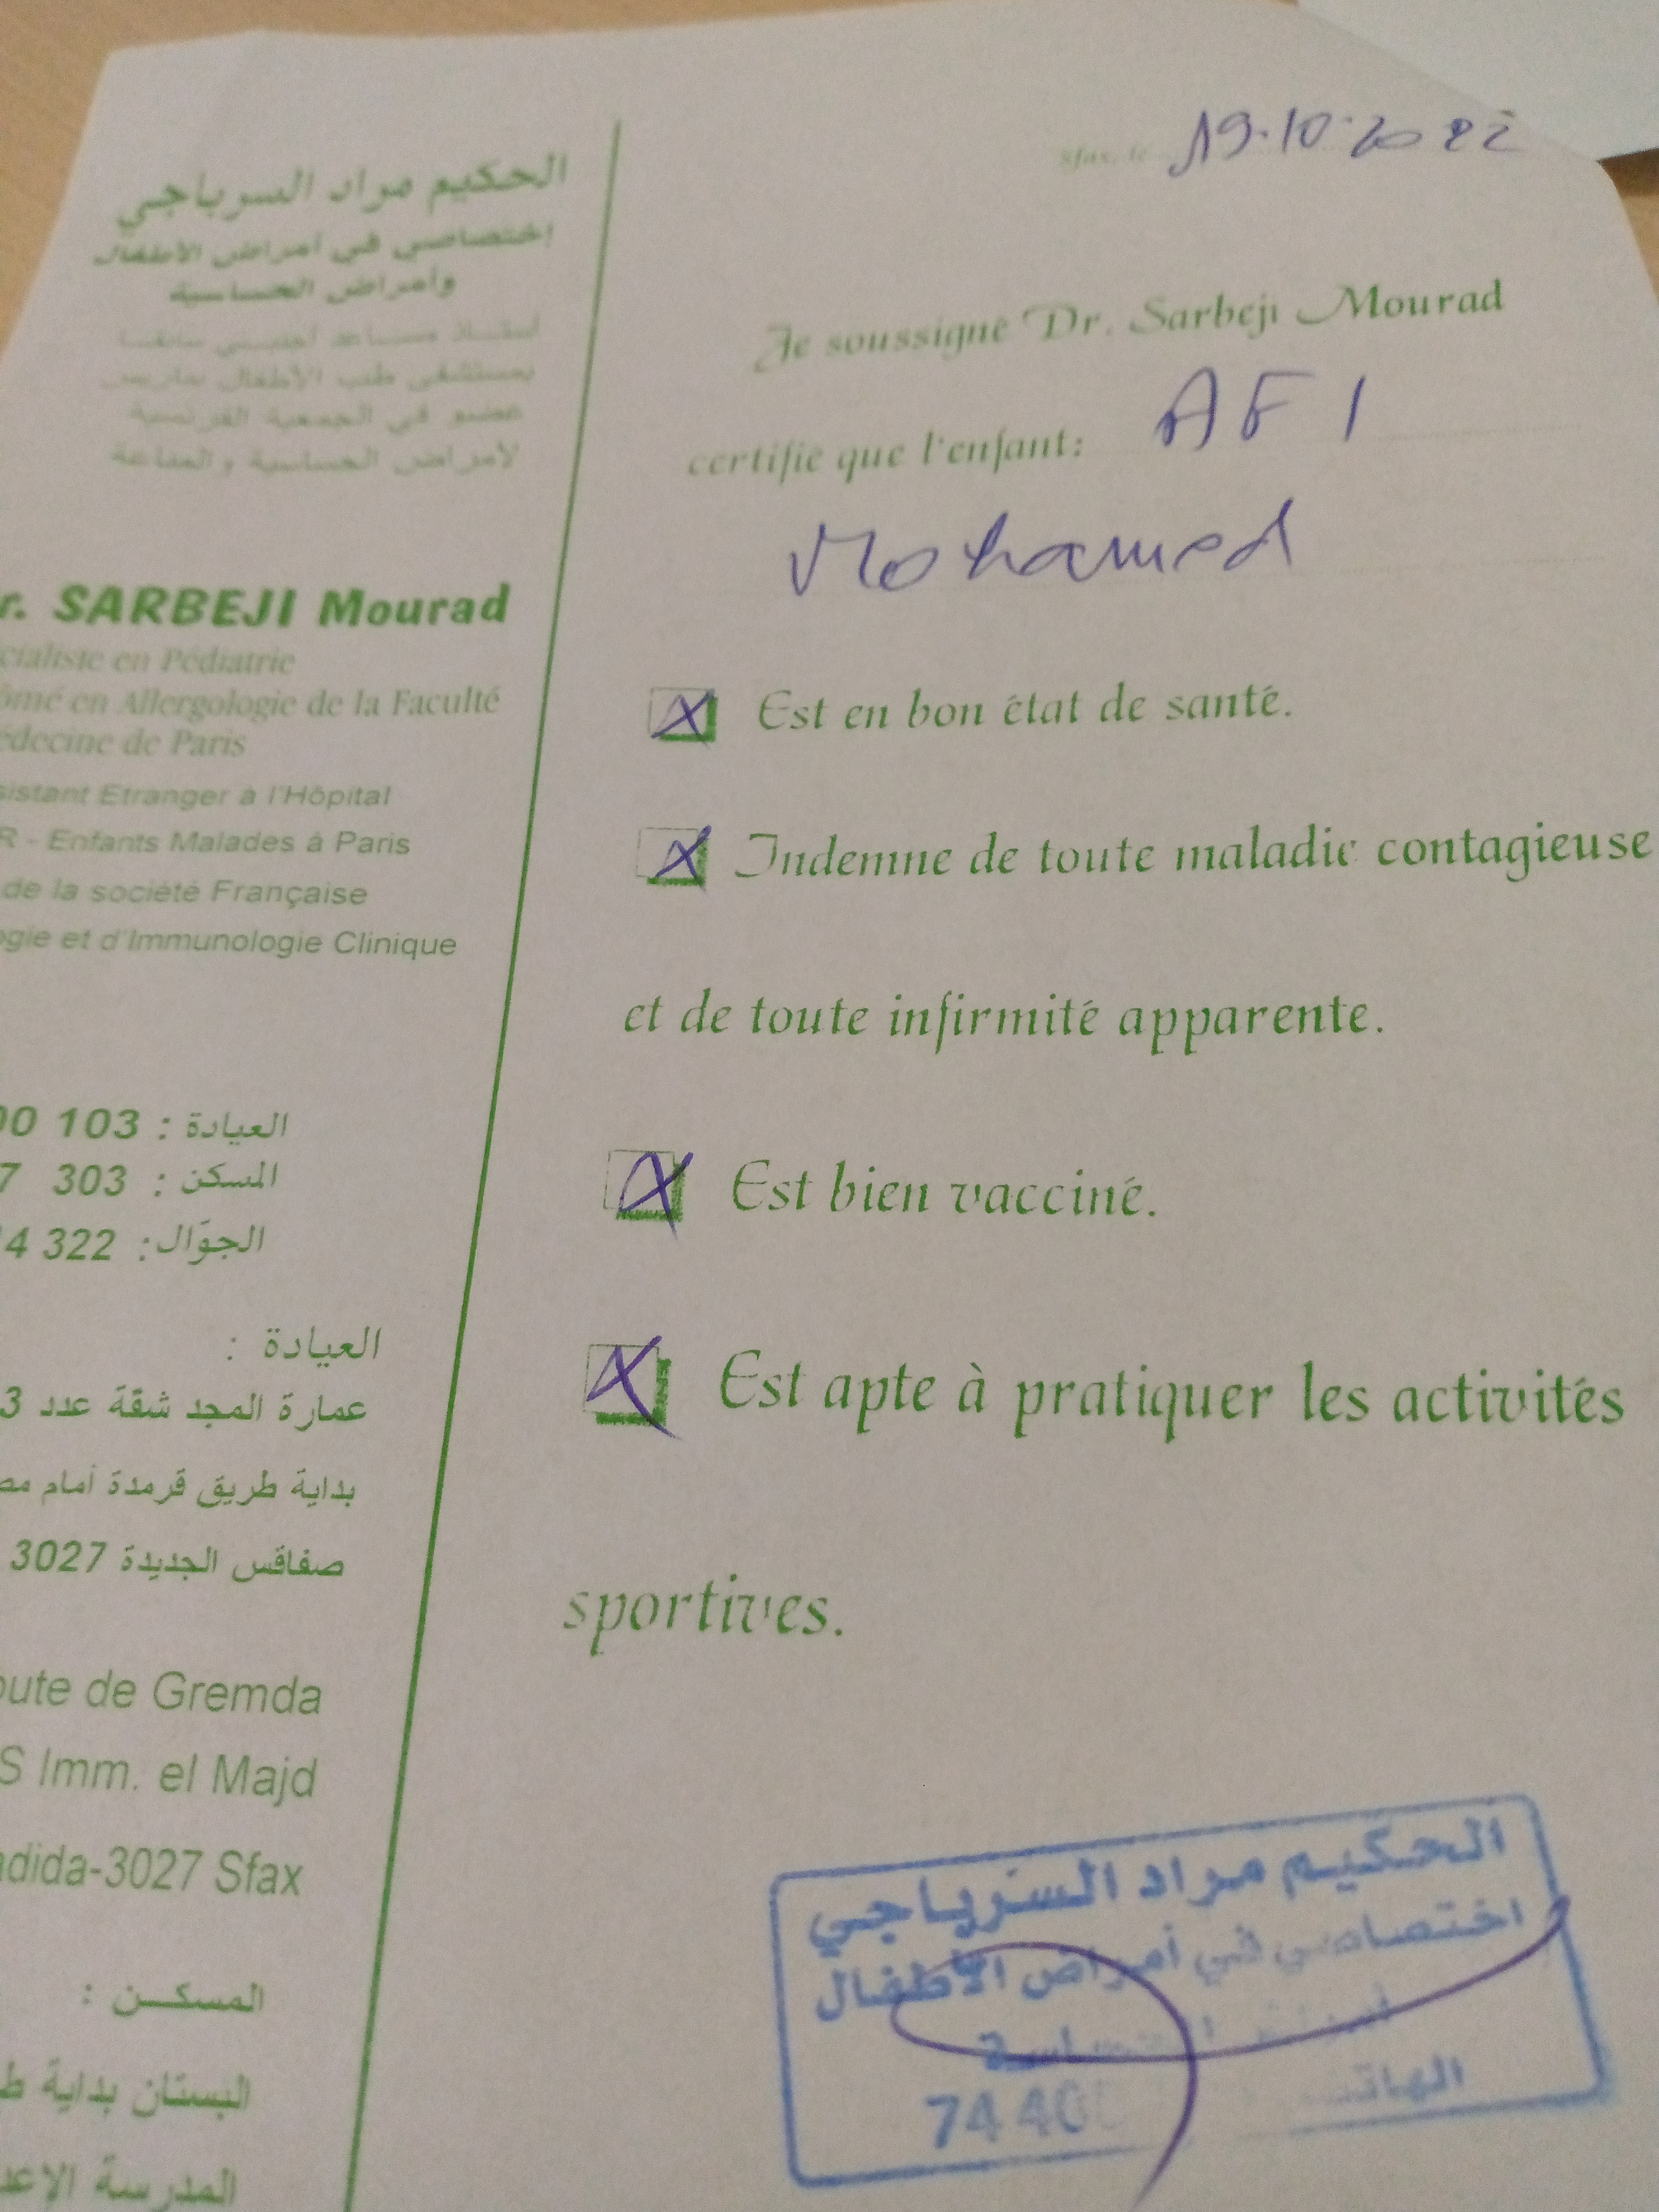 الحكيم مراد السرباجي
إختصاصي في أمراض الأطفال
وأمراض الحساسية
أستاذ مساعد أجنبي سابقا
بمستشفى طب الأطفال بباريس
عضو في الجمعية الفرنسية
لأمراض الحساسية والمناعة
r. SARBEJI Mourad
cialiste en Pédiatrie
ômé en Allergologie de la Faculté
édecine de Paris
sistant Etranger à l'Hôpital
R - Enfants Malades à Paris
de la société Française
ogie et d'Immunologie Clinique
العيادة : 103 00
المسكن : 303 7
الجوّال: 322 14
العيادة :
عمارة المجد شقة عدد 3
بداية طريق قرمدة أمام مص
صفاقس الجديدة 3027
oute de Gremda
S Imm. el Majd
adida-3027 Sfax
المسكـن :
البستان بداية ط
المدرسة الإعد
Sfax, le 19.10.2022
Je soussigné Dr. Sarbeji Mourad
certifie que l'enfant: AFI
Mohamed
Est en bon état de santé.
Indemne de toute maladie contagieuse
et de toute infirmité apparente.
Est bien vacciné.
Est apte à pratiquer les activités
sportives.
الحكيم مراد السرباجي
اختصاصي في أمراض الأطفال
الهاتف
74 40